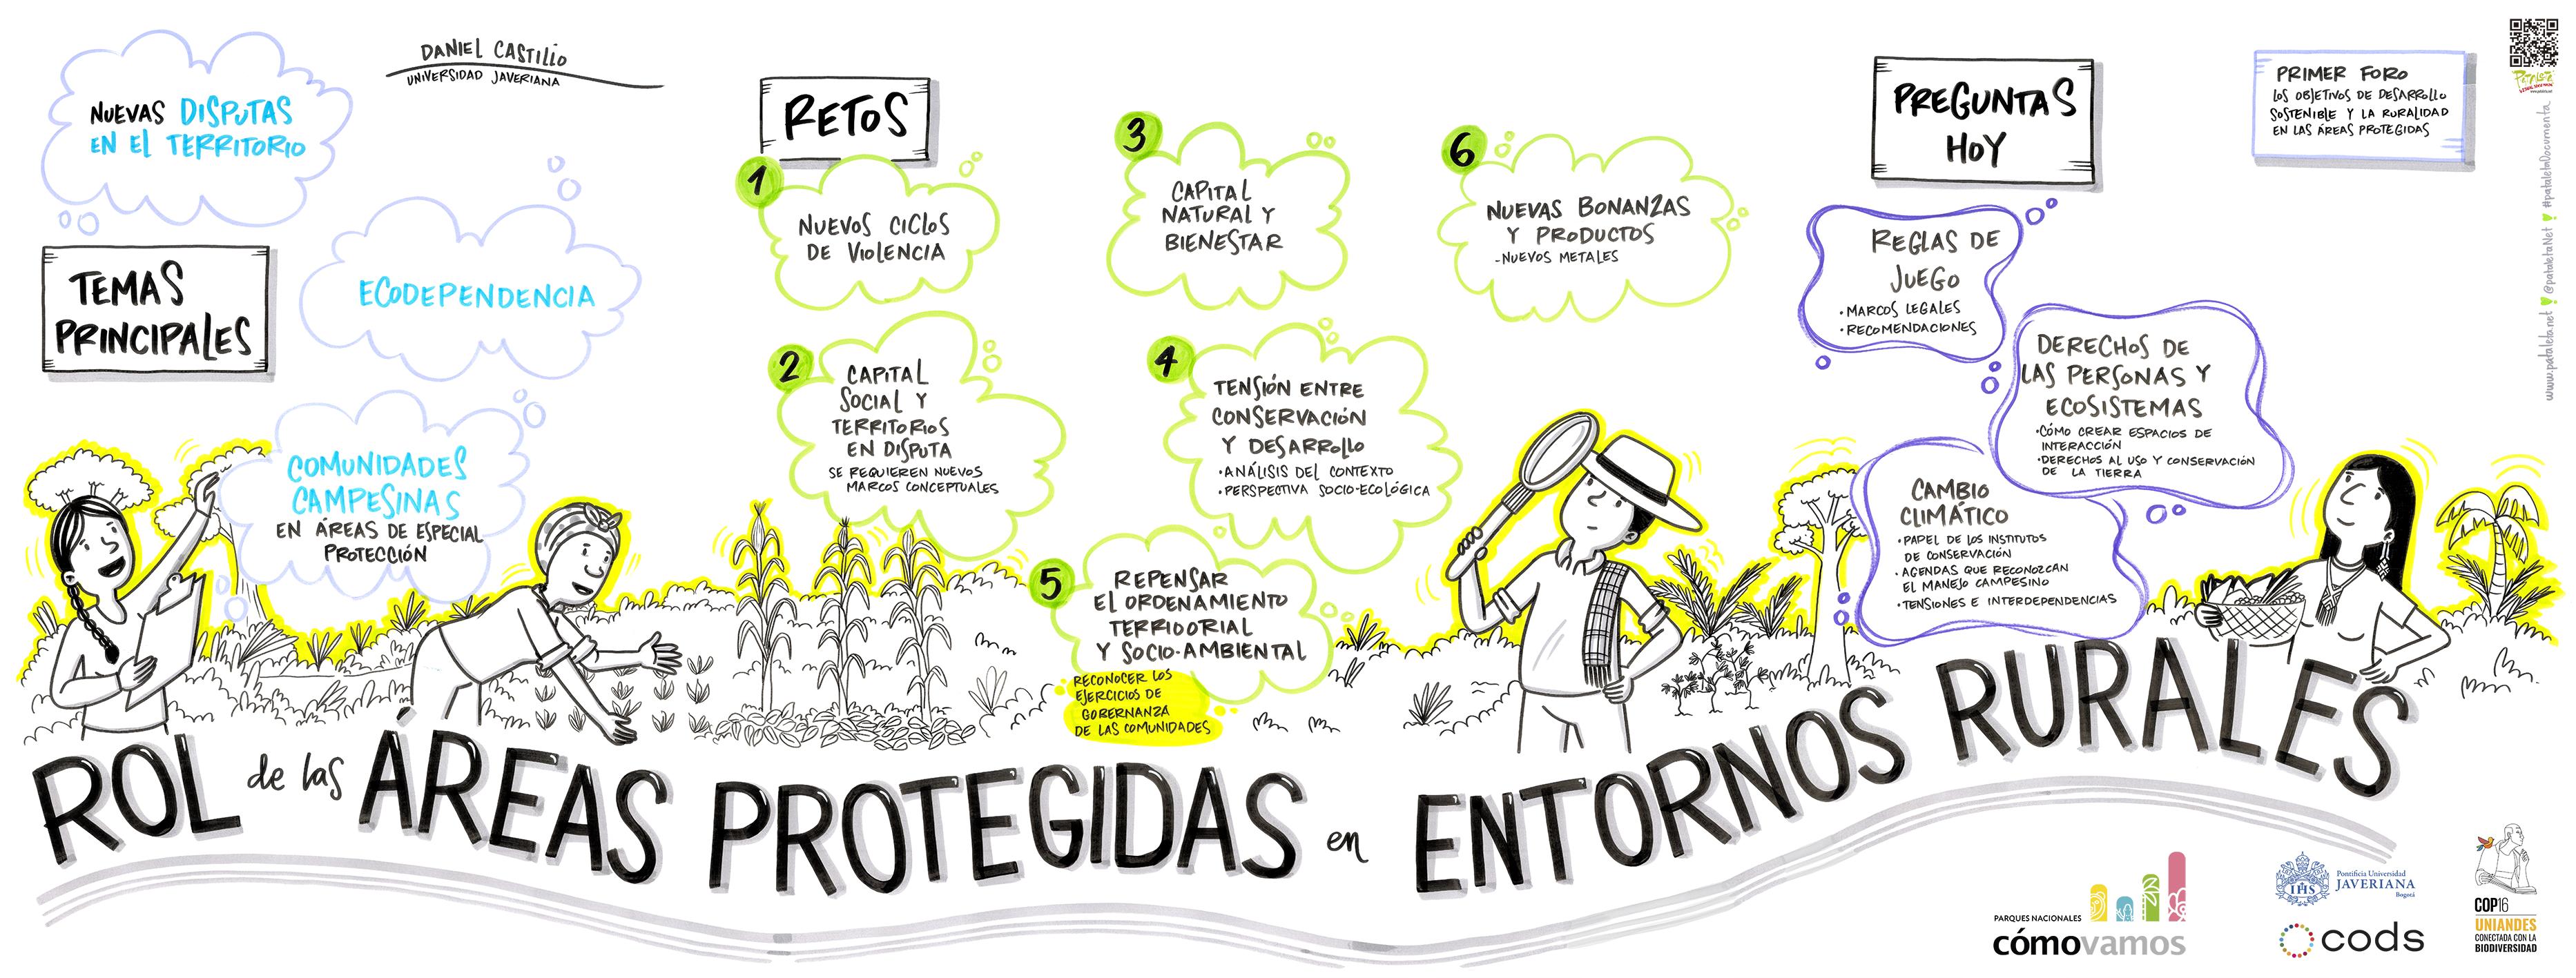 DANIEL CASTILLO
UNIVERSIDAD JAVERIANA
NUEVAS DISPUTAS
EN EL TERRITORIO
TEMAS
PRINCIPALES
ECODEPENDENCIA
COMUNIDADES
CAMPESINAS
EN ÁREAS DE ESPECIAL
PROTECCIÓN
RETOS
1
NUEVOS CICLOS
DE VIOLENCIA
2
CAPITAL
SOCIAL Y
TERRITORIOS
EN DISPUTA
SE REQUIEREN NUEVOS
MARCOS CONCEPTUALES
3
CAPITAL
NATURAL Y
BIENESTAR
4
TENSIÓN ENTRE
CONSERVACIÓN
Y DESARROLLO
•ANÁLISIS DEL CONTEXTO
•PERSPECTIVA SOCIO-ECOLÓGICA
5
REPENSAR
EL ORDENAMIENTO
TERRIDORIAL
Y SOCIO-AMBIENTAL
RECONOCER LOS
EJERCICIOS DE
GOBERNANZA
DE LAS COMUNIDADES
6
NUEVAS BONANZAS
Y PRODUCTOS
-NUEVOS METALES
PREGUNTAS
HOY
REGLAS DE
JUEGO
•MARCOS LEGALES
•RECOMENDACIONES
DERECHOS DE
LAS PERSONAS Y
ECOSISTEMAS
•CÓMO CREAR ESPACIOS DE
INTERACCIÓN
•DERECHOS AL USO Y CONSERVACIÓN
DE LA TIERRA
CAMBIO
CLIMÁTICO
•PAPEL DE LOS INSTITUTOS
DE CONSERVACIÓN
•AGENDAS QUE RECONOZCAN
EL MANEJO CAMPESINO
•TENSIONES E INTERDEPENDENCIAS
PRIMER FORO
LOS OBJETIVOS DE DESARROLLO
SOSTENIBLE Y LA RURALIDAD
EN LAS ÁREAS PROTEGIDAS
www.pataleta.net @pataletaNet #pataletaDocumenta
ROL de las ÁREAS PROTEGIDAS en ENTORNOS RURALES
PARQUES NACIONALES
cómovamos
Pontificia Universidad
JAVERIANA
Bogotá
cods
COP16
UNIANDES
CONECTADA CON LA
BIODIVERSIDAD